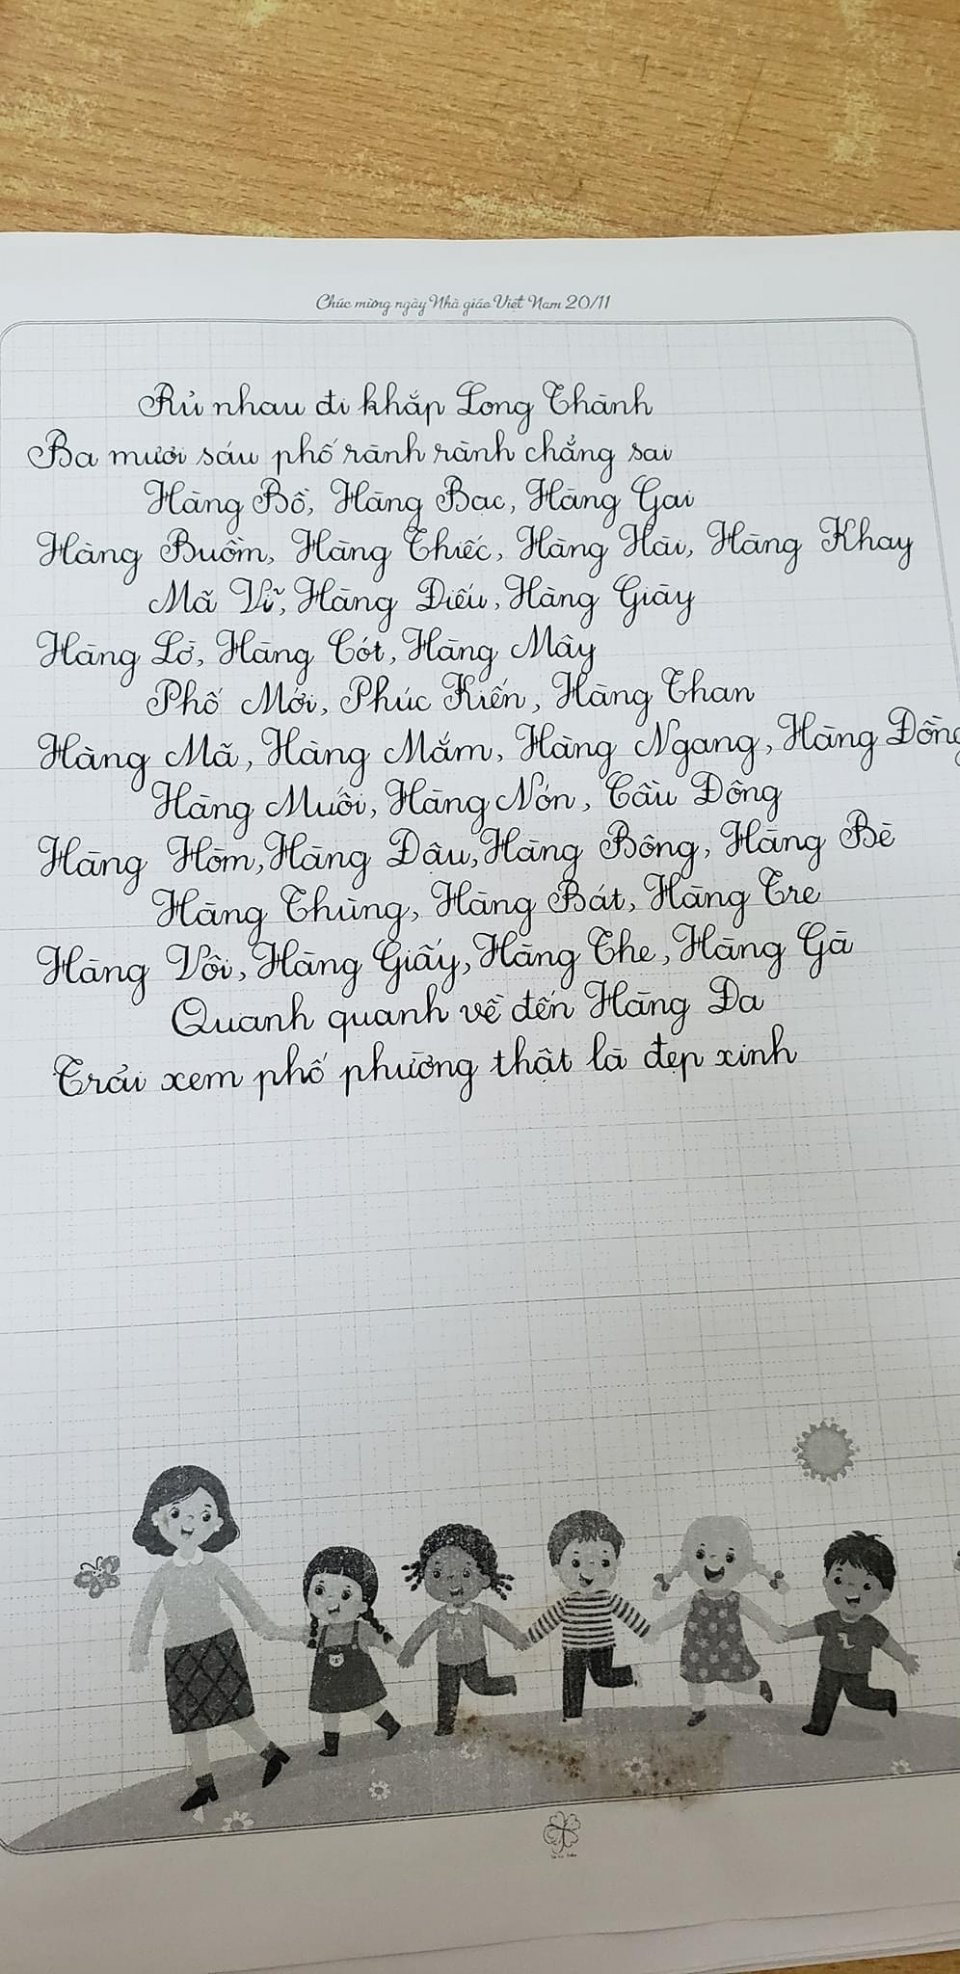 Chúc mừng ngày Nhà giáo Việt Nam 20/11
Rủ nhau đi khắp Long Thành
Ba mươi sáu phố rành rành chẳng sai
Hàng Bồ, Hàng Bạc, Hàng Gai
Hàng Buồm, Hàng Thiếc, Hàng Hài, Hàng Khay
Mã Vĩ, Hàng Điếu, Hàng Giày
Hàng Lờ, Hàng Cót, Hàng Mây
Phố Mới, Phúc Kiến, Hàng Than
Hàng Mã, Hàng Mắm, Hàng Ngang, Hàng Đồng
Hàng Muối, Hàng Nón, Cầu Đông
Hàng Hòm, Hàng Đậu, Hàng Bông, Hàng Bè
Hàng Thùng, Hàng Bát, Hàng Tre
Hàng Vôi, Hàng Giấy, Hàng The, Hàng Gà
Quanh quanh về đến Hàng Da
Trải xem phố phường thật là đẹp xinh